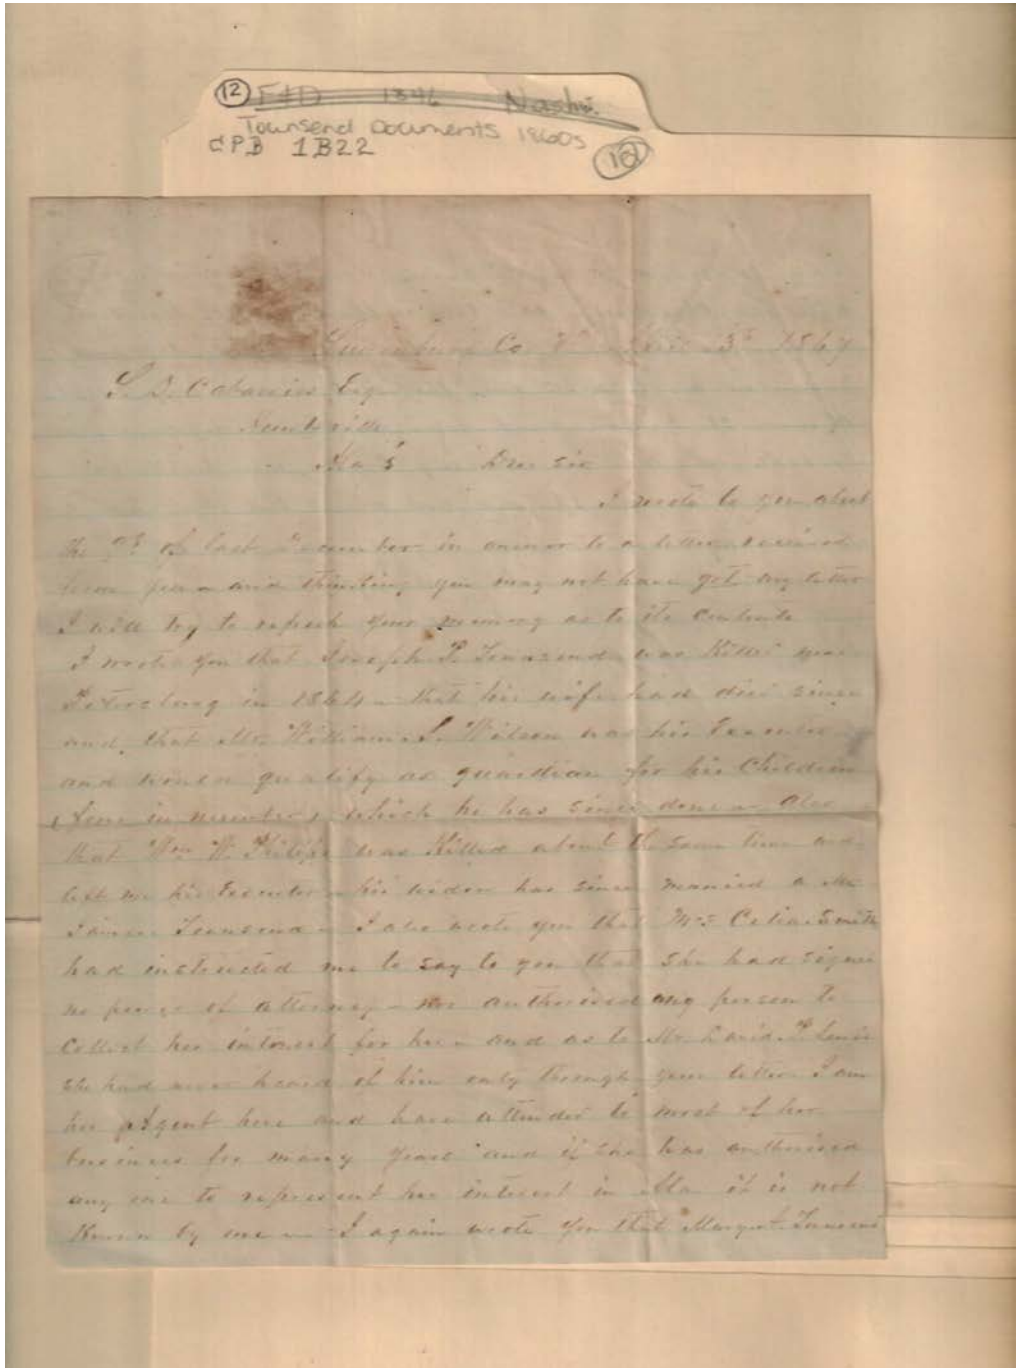 12 F&D 1846 Nashv.
Townsend Documents 1860s
CPB 1B22
12
Lunenburg Co. Va 3d 1867
S. D. Cabaniss Esq
Huntsville
Ala Dear Sir
I wrote to you about
the 9th of last December in answer to a letter received
from you and thinking you may not have got my letter
I will try to refresh your memory as to its contents
I wrote you that Joseph P. Townsend was Killed near
Petersburg in 1864 - that his wife had died since
and, that Mr. William S. Wilson was his Executor
and would qualify as guardian for his Children
(some in number) which he has since done - Also
that Wm W. Philips was Killed about the same time and
left me his Executor - his widow has since married a Mr
James Townsend - I also wrote you that Mrs Celia Smith
had instructed me to say to you that she had signed
no power of attorney - nor authorised any person to
Collect her interest for her - and as to Mr. David P. Lewis
she had never heard of him only through your letter I am
her Agent here and have attended to most of her
business for many years and if she has authorised
any one to represent her interest in Ala it is not
Known by me - I again wrote you that Margret Townsend